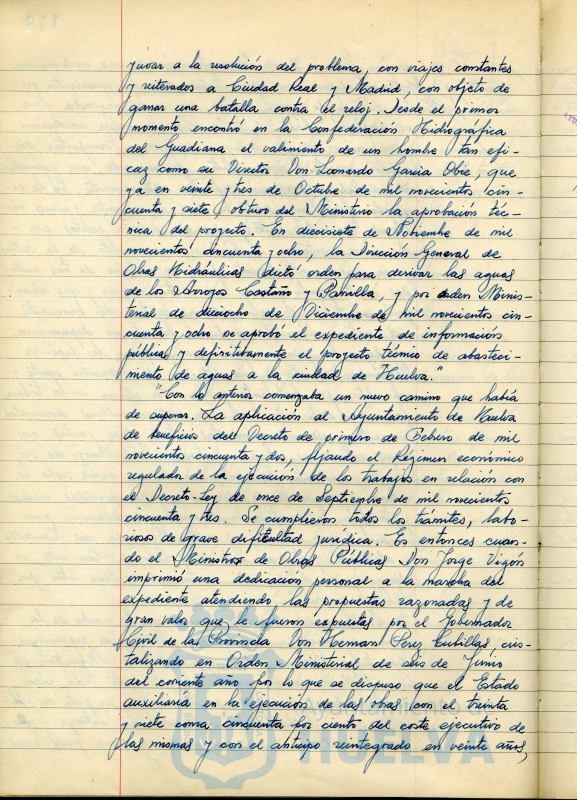 yuvar a la resolución del problema, con viajes constantes
y reiterados a Ciudad Real y Madrid, con objeto de
ganar una batalla contra el reloj. Desde el primer
momento encontró en la Confederación Hidrográfica
del Guadiana el valimiento de un hombre tan efi-
caz como su Director Don Leonardo García Obie, que
ya en veinte y tres de Octubre de mil novecientos cin-
cuenta y siete obtuvo del Ministerio la aprobación téc-
nica del proyecto. En diecisiete de Nobiembre de mil
novecientos cincuenta y ocho, la Dirección General de
Obras Hidráulicas dictó orden para derivar las aguas
de los Arroyos Castaño y Panilla, y por orden Minis-
terial de dieciocho de Diciembre de mil novecientos cin-
cuenta y ocho se aprobó el expediente de información
pública y definitivamente el proyecto técnico de abasteci-
miento de aguas a la ciudad de Huelva."
"Con lo anterior comenzaba un nuevo camino que había
de superar. La aplicación al Ayuntamiento de Huelva
de beneficios del Decreto de primero de Febrero de mil
novecientos cincuenta y dos, fijando el Régimen económico
regulador de la ejecución de los trabajos en relación con
el Decreto-Ley de once de Septiembre de mil novecientos
cincuenta y tres. Se cumplieron todos los trámites, labo-
riosos de grave dificultad jurídica. Es entonces cuan-
do el Ministro de Obras Públicas Don Jorge Vigón
imprimió una dedicación personal a la marcha del
expediente atendiendo las propuestas razonadas y de
gran valor que le fueron expuestas por el Gobernador
Civil de la Provincia Don Hernan Perez Cubillas cris-
talizando en Orden Ministerial de seis de Junio
del corriente año por lo que se dispuso que el Estado
auxiliaría en la ejecución de las obras con el treinta
y siete coma cincuenta por ciento del coste ejecutivo de
las mismas y con el anticipo reintegrado en veinte años,
HUELVA